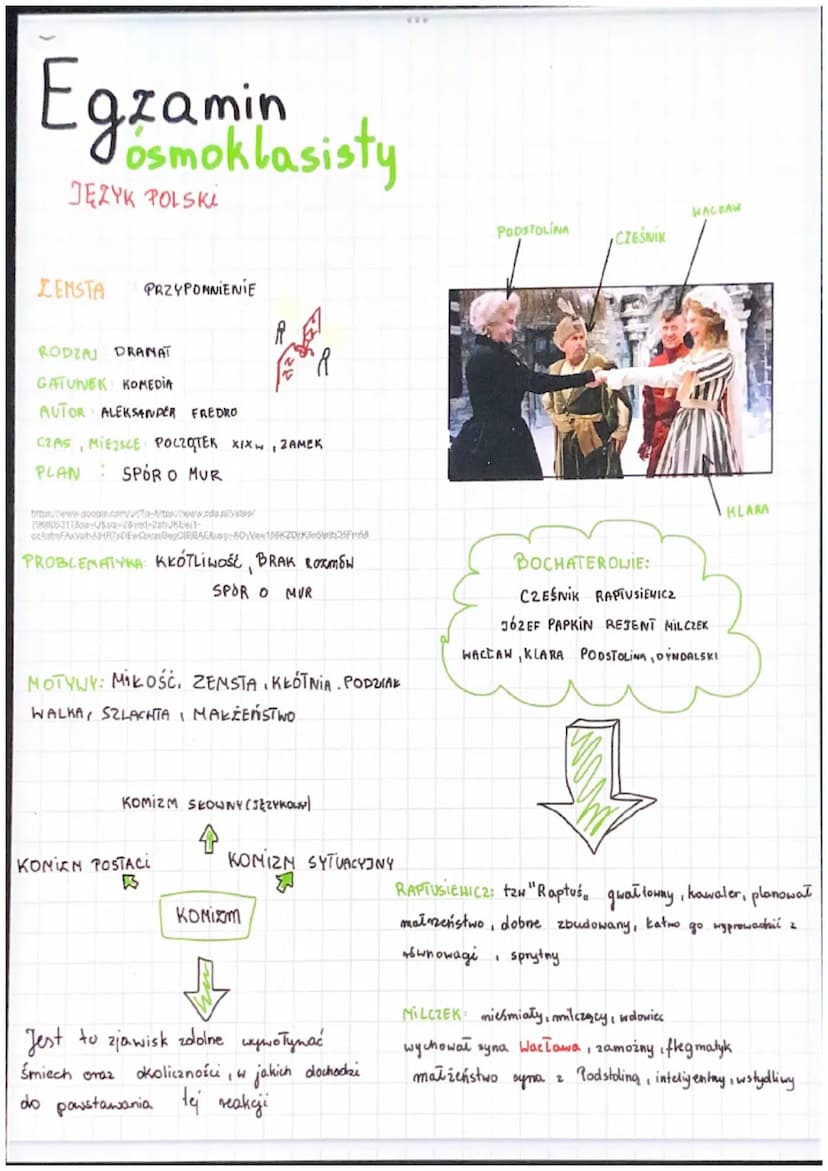 Egzamin
ósmoklasisty
JĘZYK POLSKI
ZEMSTA PRZYPOMNIENIE
RODZAJ DRAMAT
GATUNEK KOMEDIA
AUTOR ALEKSANDER FREDRO
CZAS, MIEJSCE POCZĄTEK XIXw, ZAMEK
PLAN : SPÓR O MUR
PROBLEMATYKA: KŁÓTLIWOŚĆ, BRAK ROZMÓW
SPÓR O MUR
MOTYWY: MIŁOŚĆ, ZEMSTA, KŁÓTNIA, PODZIAŁ
WALKA, SZLACHTA, MAŁŻEŃSTWO
KOMIZM SŁOWNY (JĘZYKOWY)
KOMIZM POSTACI
KOMIZM SYTUACYJNY
KOMIZM
Jest to zjawisk zdolne wywoływać
śmiech oraz okoliczności, w jakich dochodzi
do powstawania tej reakcji
PODSTOLINA
CZEŚNIK
WACŁAW
KLARA
BOCHATEROWIE:
CZEŚNIK RAPTUSIEWICZ
JÓZEF PAPKIN REJENT MILCZEK
WACŁAW, KLARA PODSTOLINA, DYNDALSKI
RAPTUSIEWICZ: tzw "Raptuś„ gwałtowny, kawaler, planował
małżeństwo, dobne zbudowany, łatwo go wyprowadzić z
równowagi, sprytny
MILCZEK: nieśmiały, milczący, wdowiec
wychował syna Wacława, zamożny, flegmatyk
małżeństwo syna z Podstoliną, inteligentny, wstydliwy